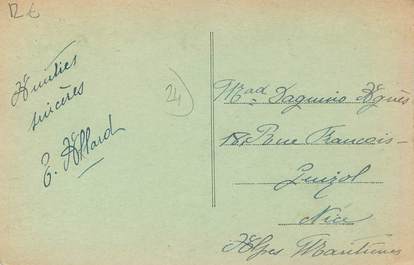 12 €
Amitiés
sincères
E. Allard
24
Mad Daquino Agnès
18, Rue François
Guizol
Nice
Alpes Maritimes